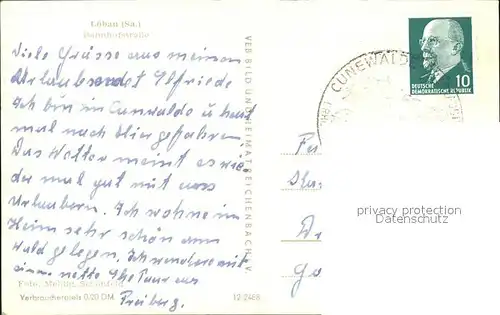 Löbau (Sa.)
Bahnhofstraße
Viele Grüsse aus meinem
Urlaub sendet Elfriede
Ich bin in Cunwalde u. heut
mal nach hier gefahren
Das Wetter meint es wie
der mal gut mit uns
Urlaubern. Ich wohne im
Heim sehr schön am
Wald gelegen. Ich wandere mit
einem netten Ehepaar aus
Freiberg.
Verbraucherpreis 0,20 DM
12 2468
VEB BILD UND HEIMAT REICHENBACH I. V.
CUNEWALDE
DEUTSCHE
DEMOKRATISCHE REPUBLIK
10
privacy protection
Datenschutz